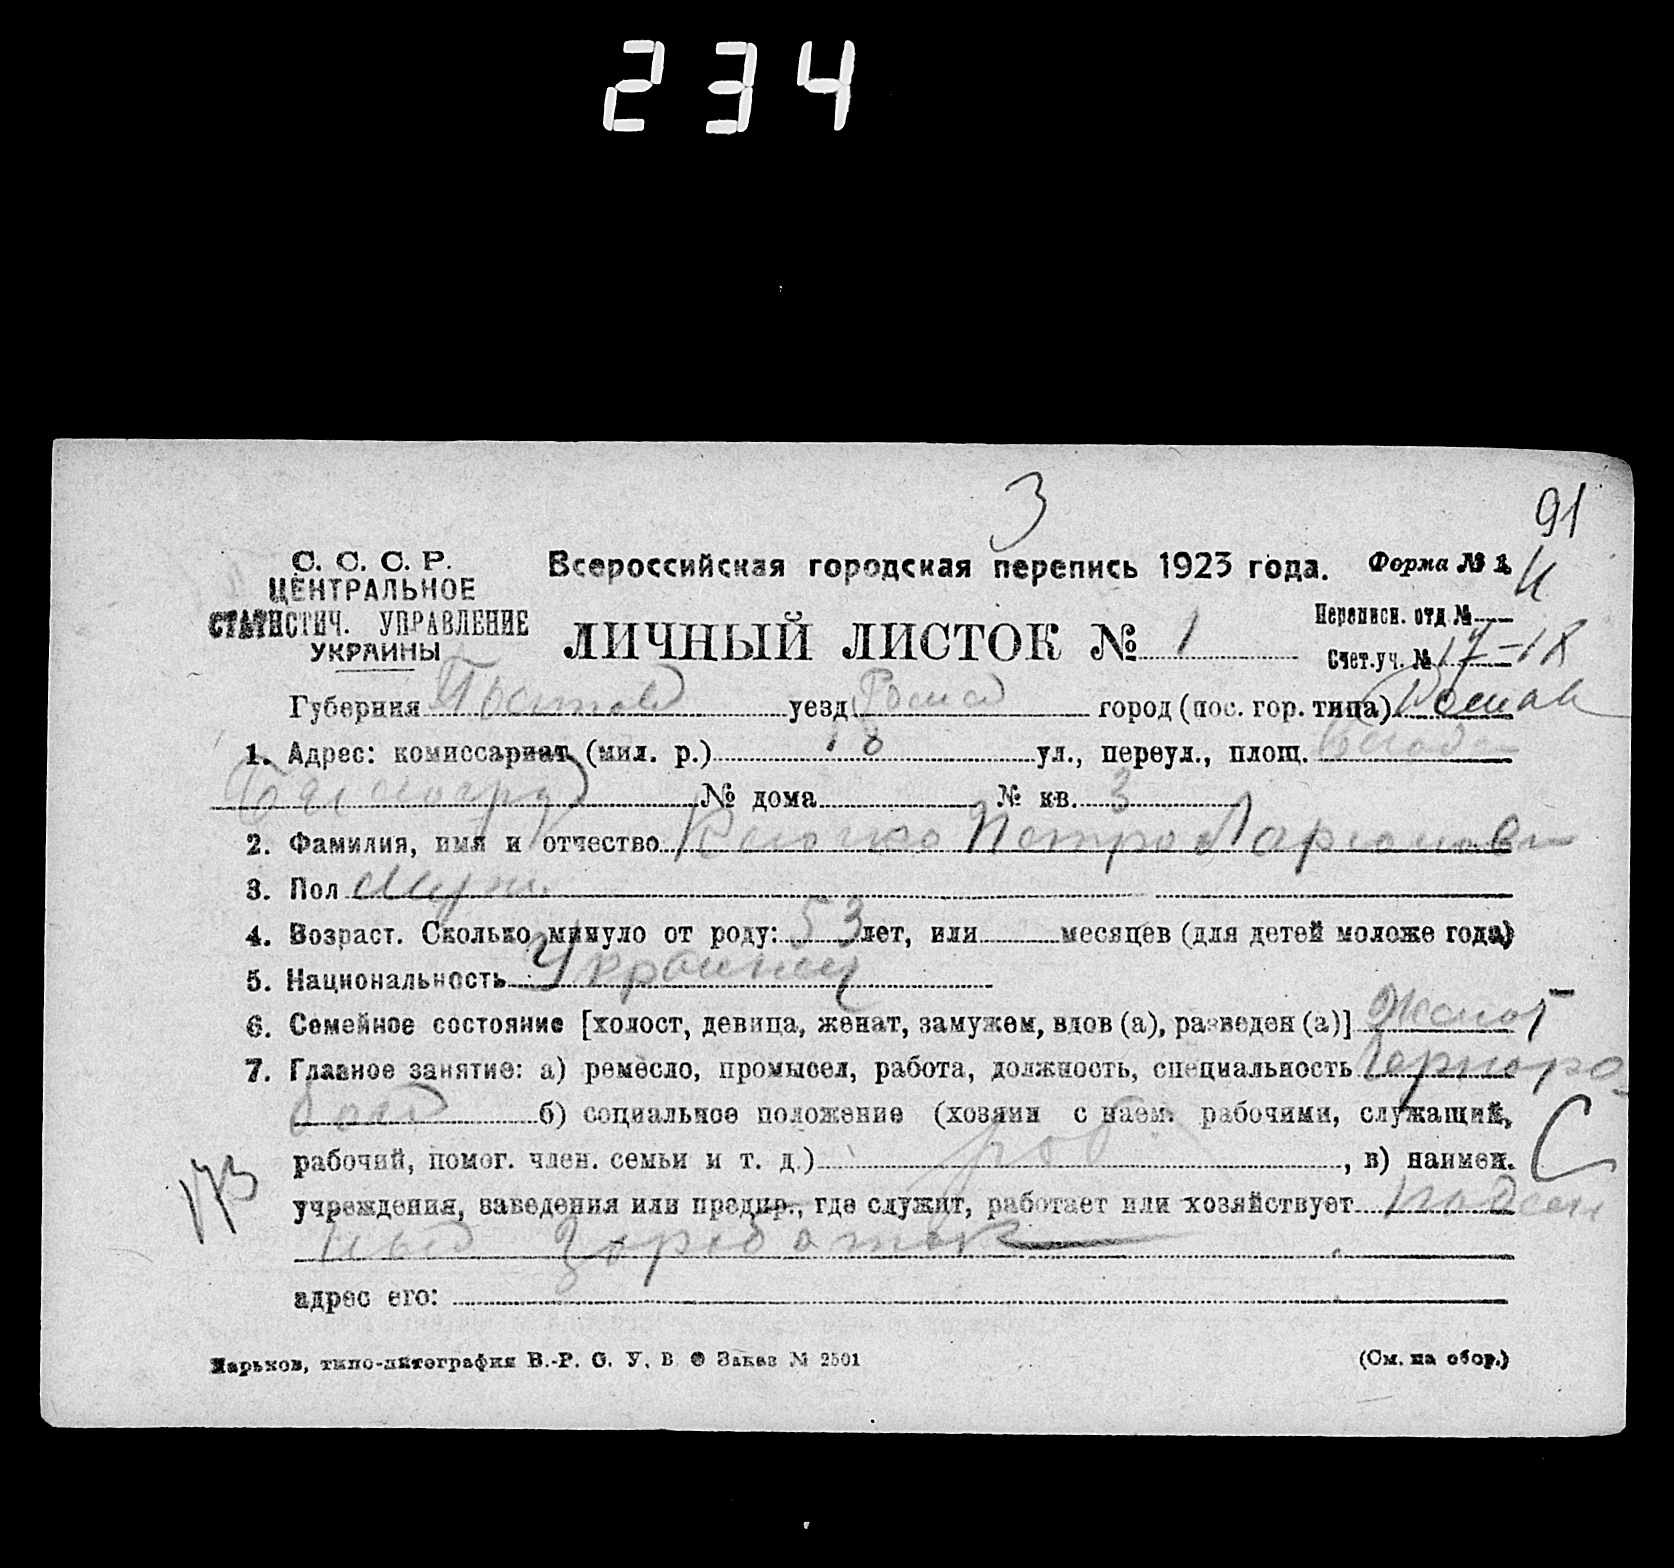 234
3
91
С. С. С. Р.
ЦЕНТРАЛЬНОЕ
СТАТИСТИЧ. УПРАВЛЕНИЕ
УКРАИНЫ
Всероссийская городская перепись 1923 года. Форма № 1.
ЛИЧНЫЙ ЛИСТОК № 1
Переписн. отд №
Счет.уч. № 17-18
Губерния Полтав уезд Ромен город (пос. гор. типа) Ромен
1. Адрес: комиссариат (мил. р.) 18 ул., переул., площ.
Бульвард № дома № кв. 3
2. Фамилия, имя и отчество Клочко Петро Ларионов
3. Пол Муж.
4. Возраст. Сколько минуло от роду: 53 лет, или месяцев (для детей моложе года)
5. Национальность Украинец
6. Семейное состояние [холост, девица, женат, замужем, вдов (а), разведен (а)] Женат
7. Главное занятие: а) ремесло, промысел, работа, должность, специальность Чернора-
бочий б) социальное положение (хозяин с наем. рабочими, служащий,
рабочий, помог. член. семьи и т. д.) раб. , в) наимен.
С
173
учреждения, заведения или предпр., где служит, работает или хозяйствует поден
ный заработок
адрес его:
Харьков, типо-литография В.-Р. С. У. В. Заказ № 2501 (См. на обор.)